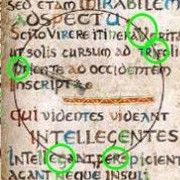 SED ETAM MIRABILEM
ASPECTU
SCITO VIRERE ITINERA VERITAS
UT SOLIS CURSUM AD TRIFOLI
ORIENTE AD OCCIDENTEM
INSCRIPTAE
QUI VIDENTES VIDEANT
INTELLECENTES
INTELLECANT, PERSPICIENT
AGANT NEQUE INSULI